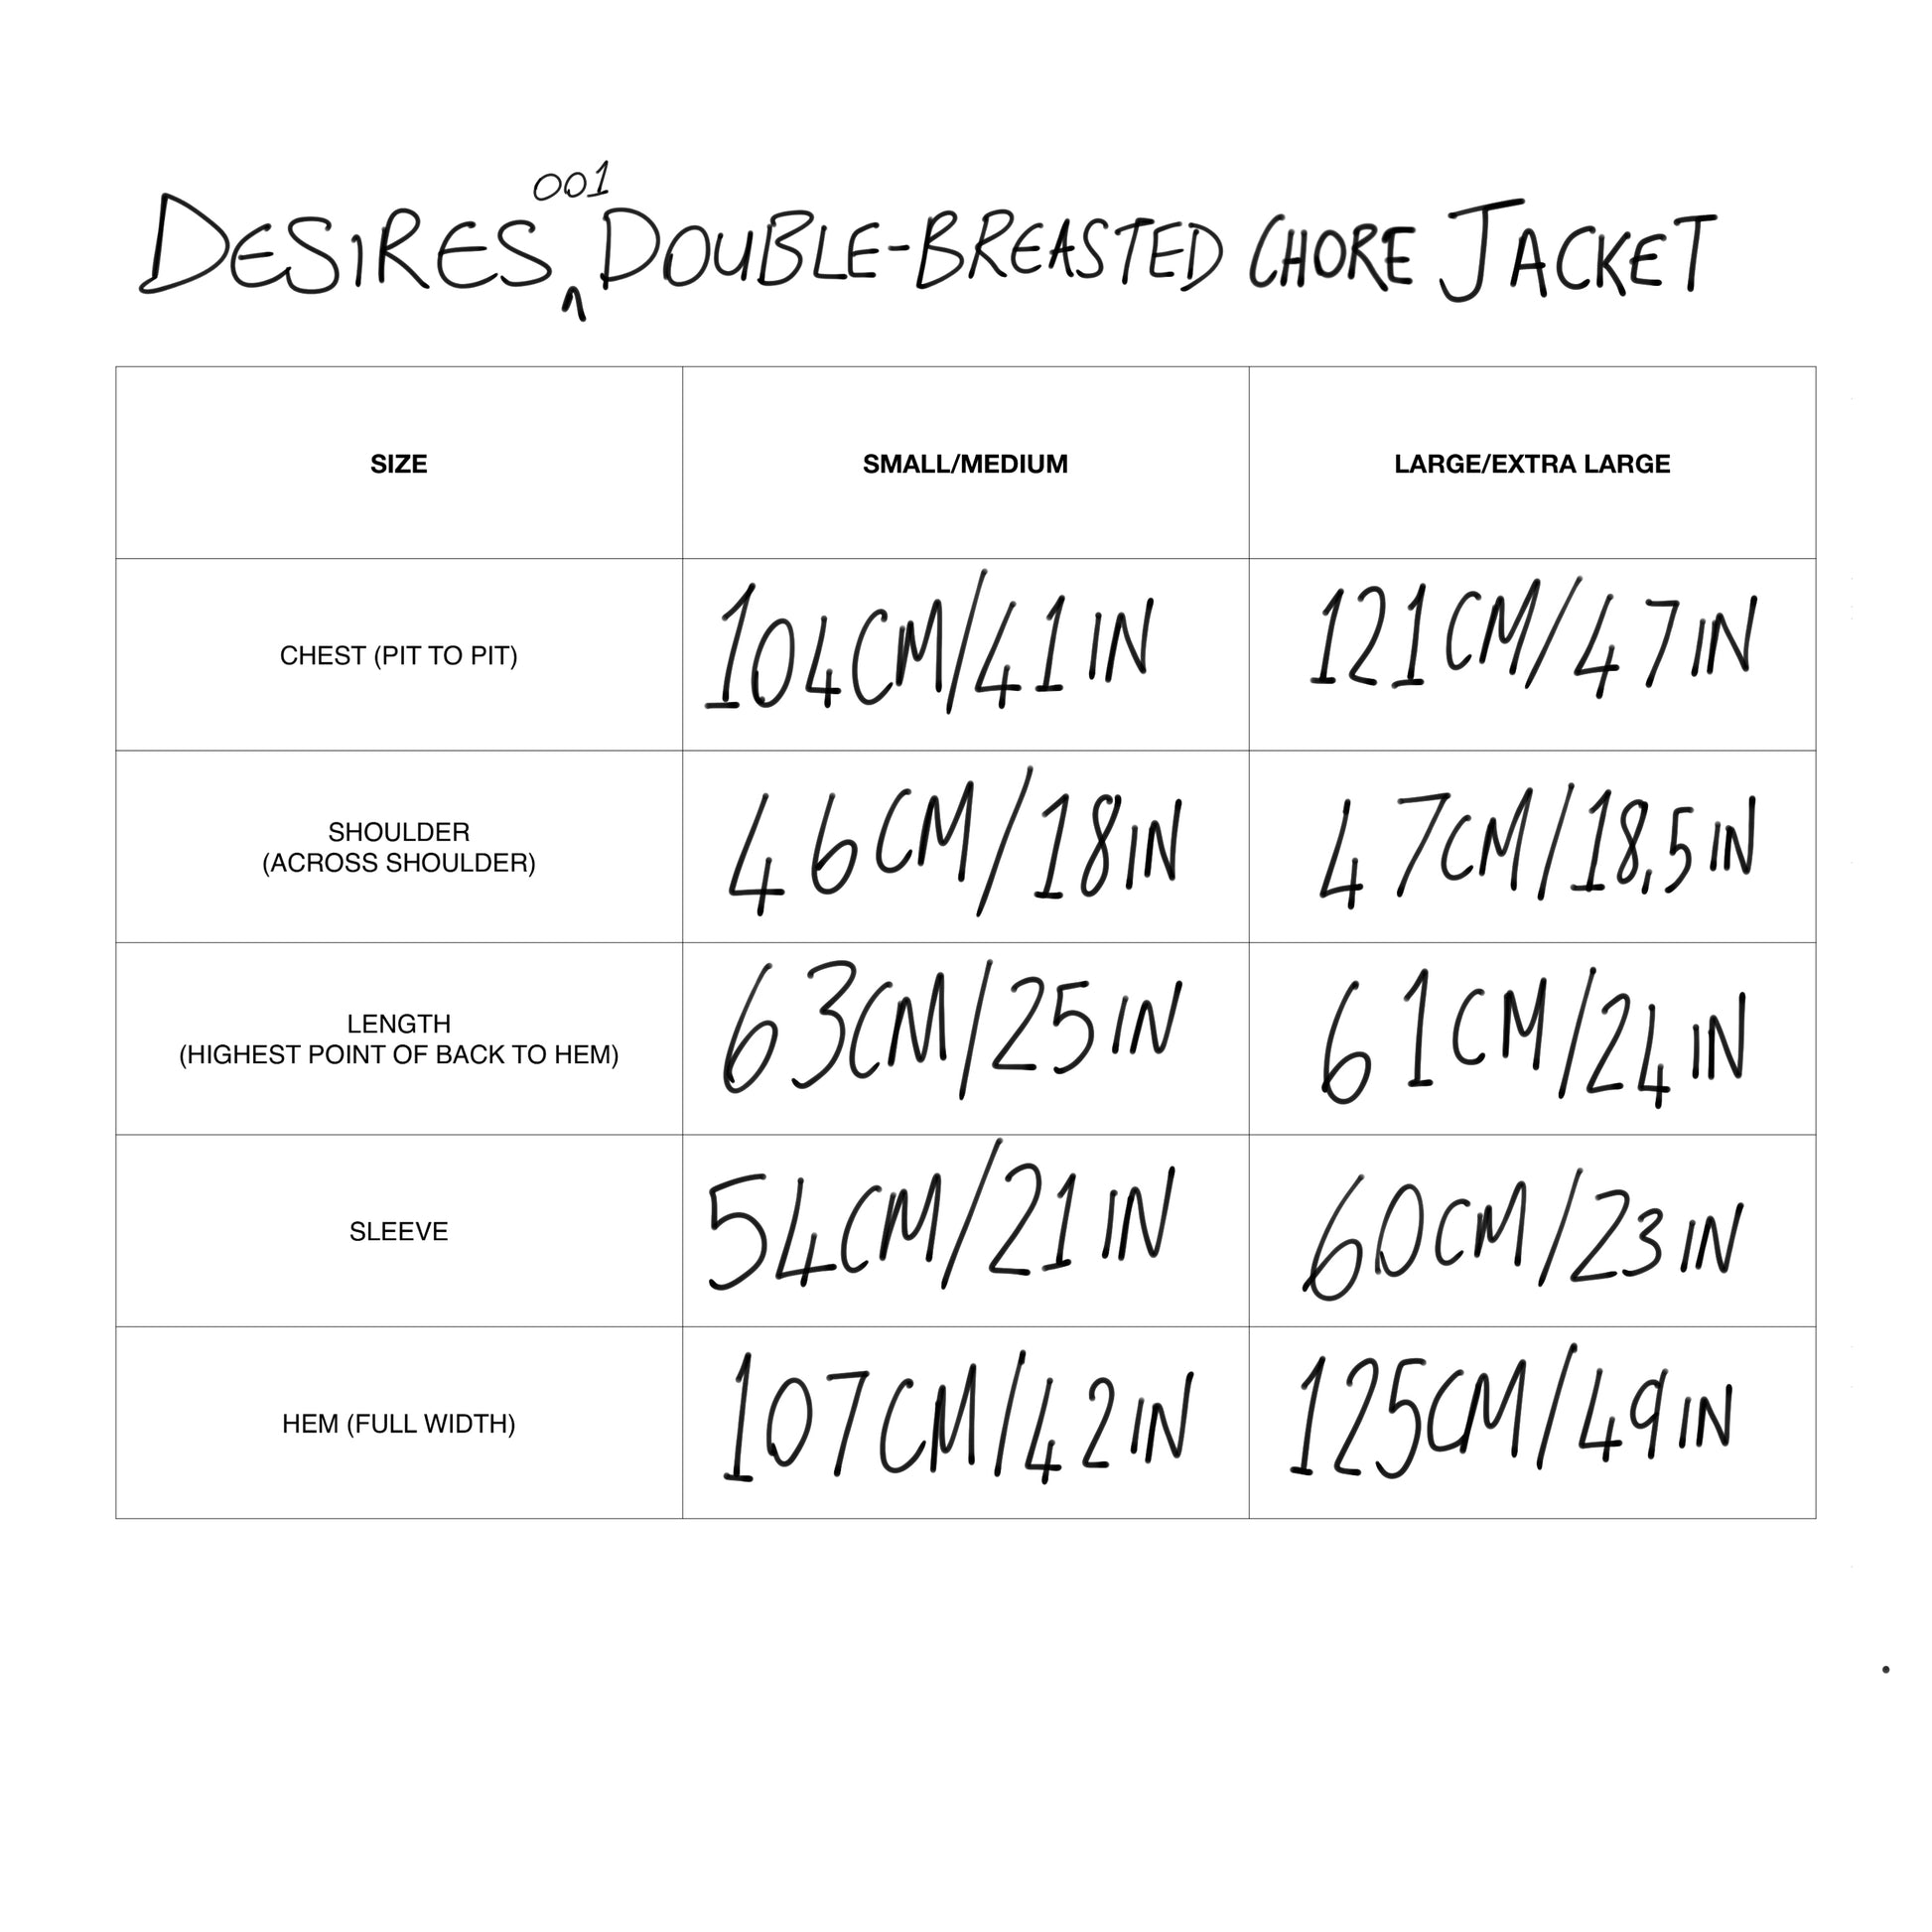 DESIRES 001 DOUBLE-BREASTED CHORE JACKET
SIZE SMALL/MEDIUM LARGE/EXTRA LARGE
CHEST (PIT TO PIT) 104CM/41IN 121CM/47IN
SHOULDER
(ACROSS SHOULDER) 46CM/18IN 47CM/18,5IN
LENGTH
(HIGHEST POINT OF BACK TO HEM) 63CM/25IN 61CM/24IN
SLEEVE 54CM/21IN 60CM/23IN
HEM (FULL WIDTH) 107CM/42IN 125CM/49IN